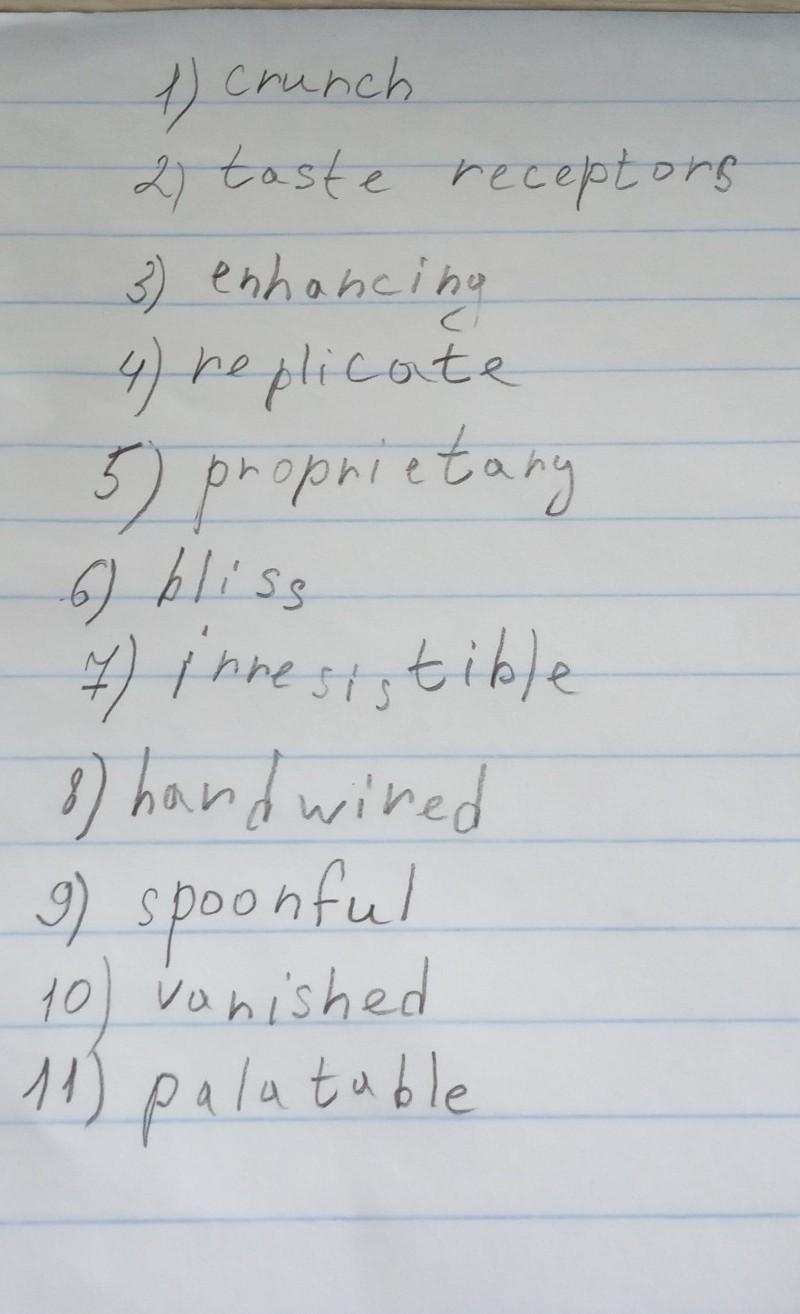 1) crunch
2) taste receptors
3) enhancing
4) replicate
5) proprietary
6) bliss
7) irresistible
8) hardwired
9) spoonful
10) vanished
11) palatable